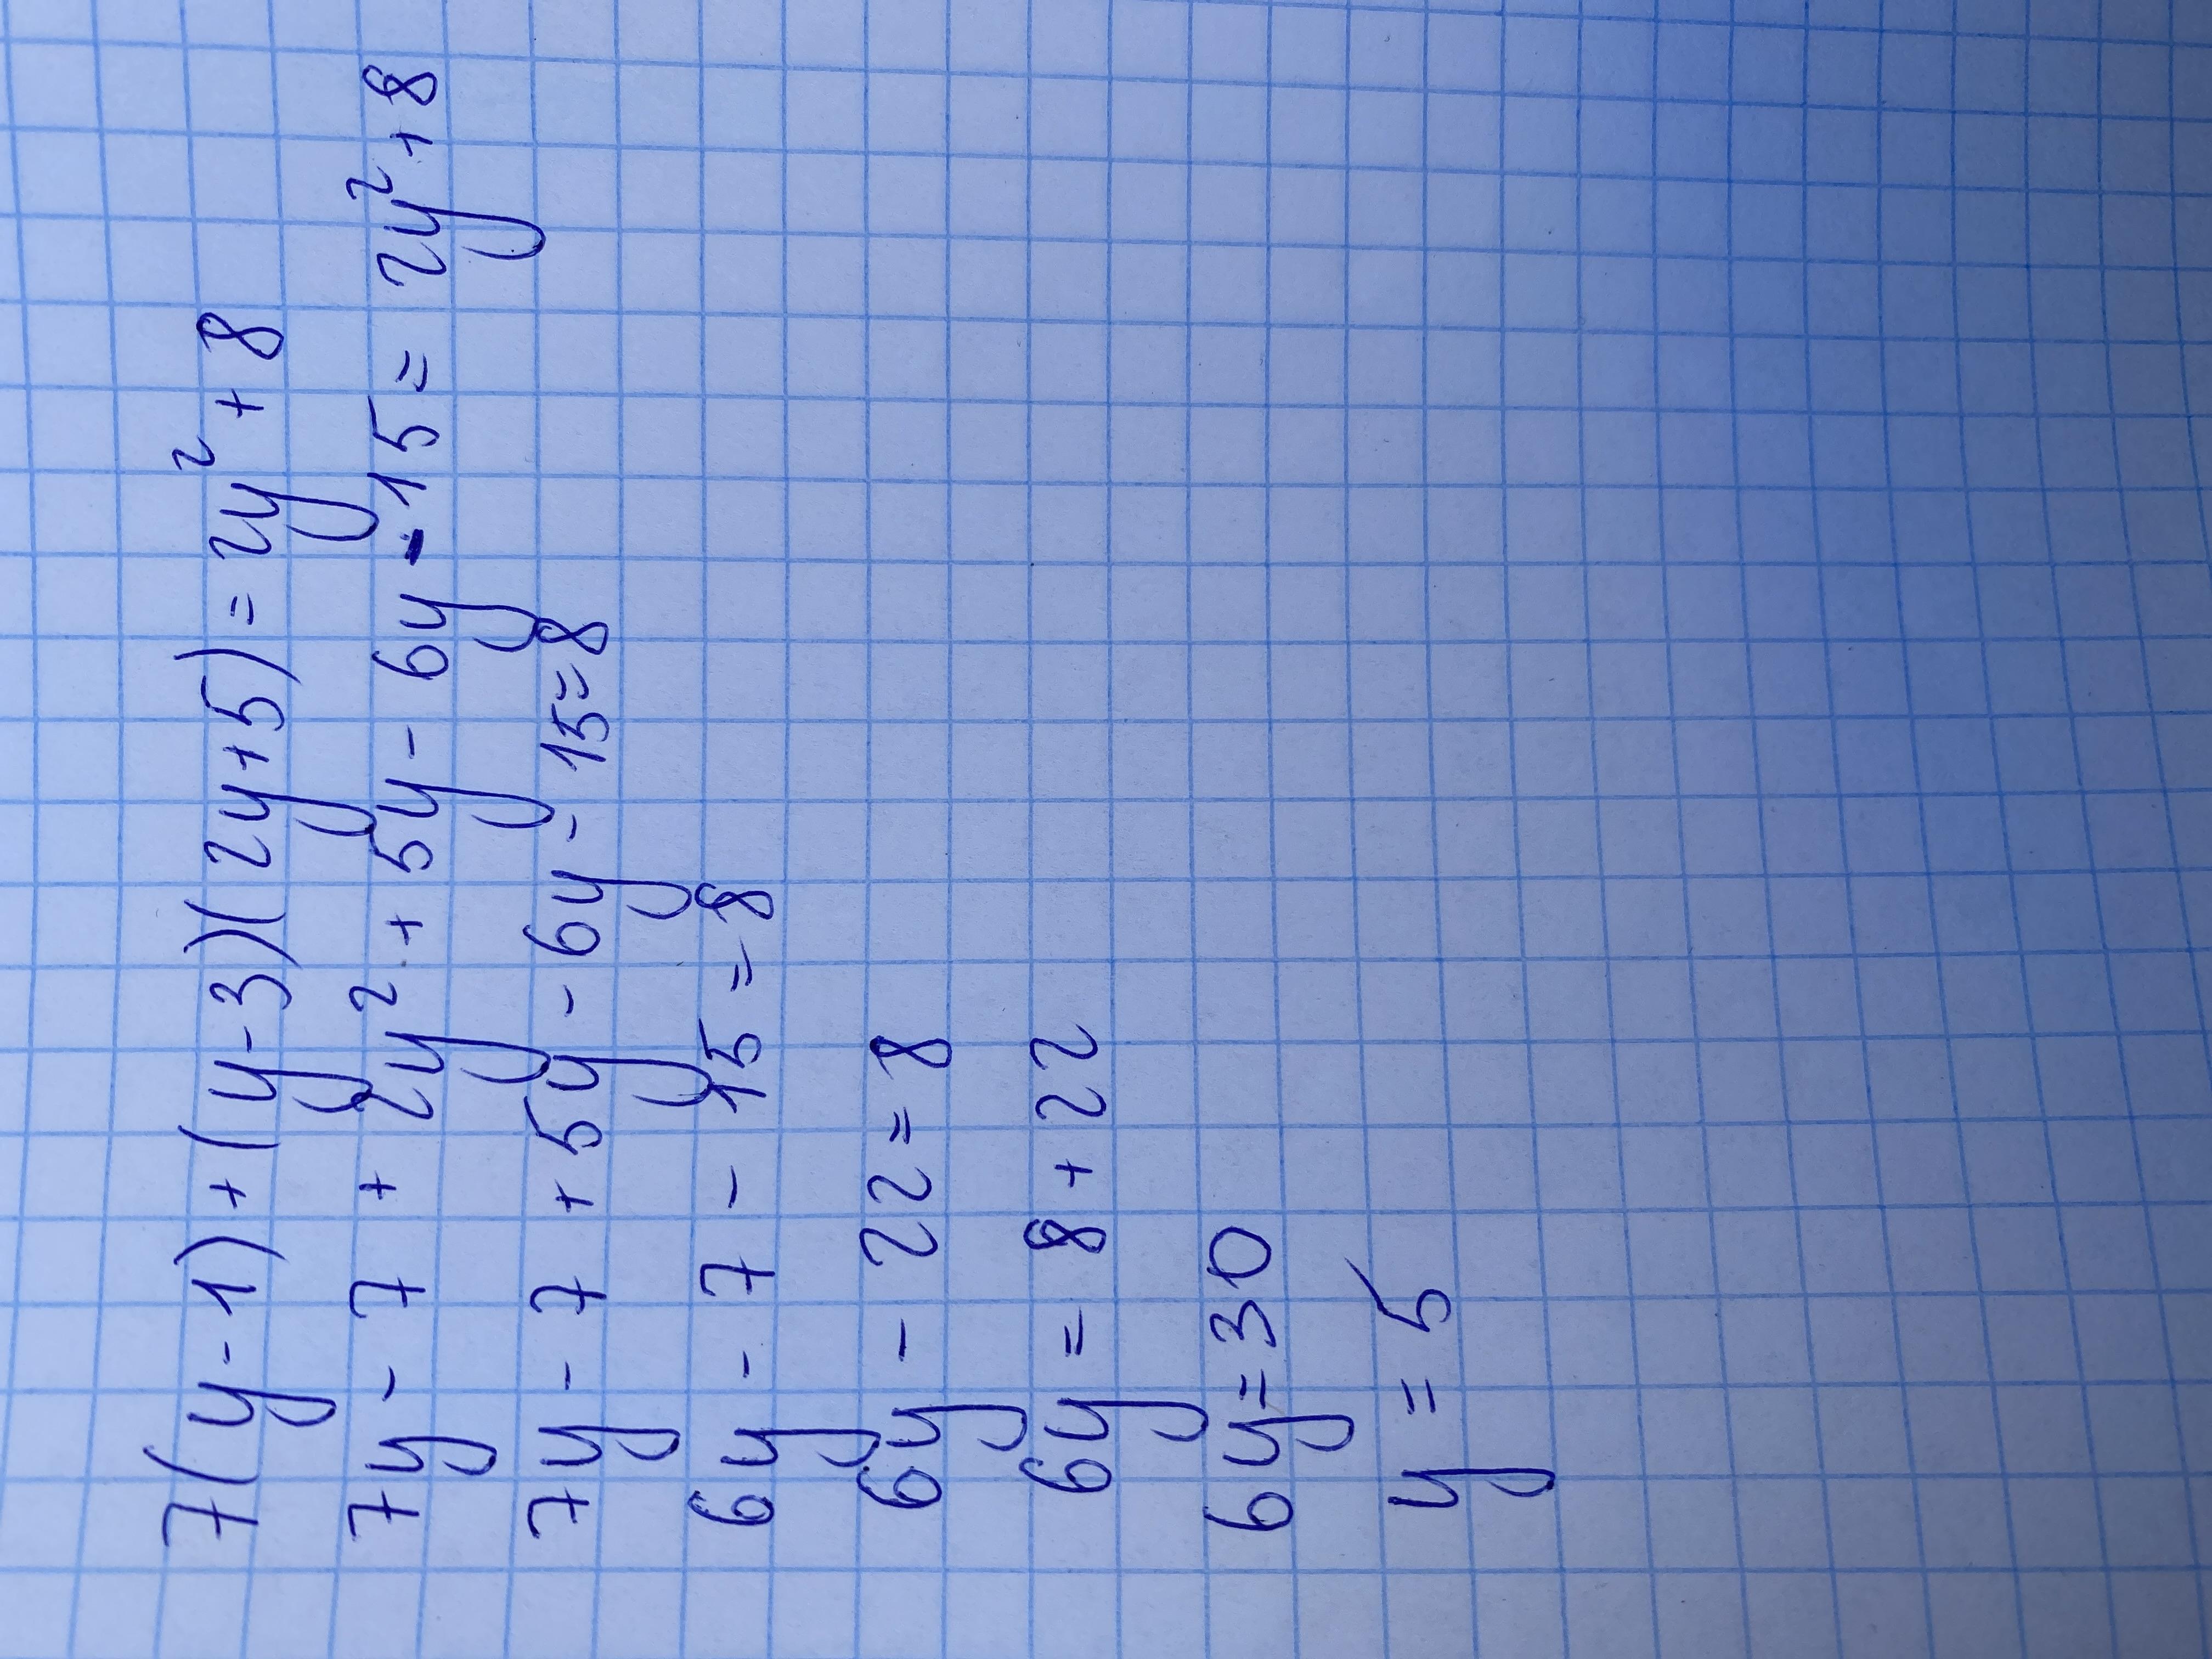 7(y-1)+(y-3)(2y+5)=2y²+8
7y-7+2y²+5y-6y-15=2y²+8
7y-7+5y-6y-15=8
6y-7-15=8
6y-22=8
6y=8+22
6y=30
y=5